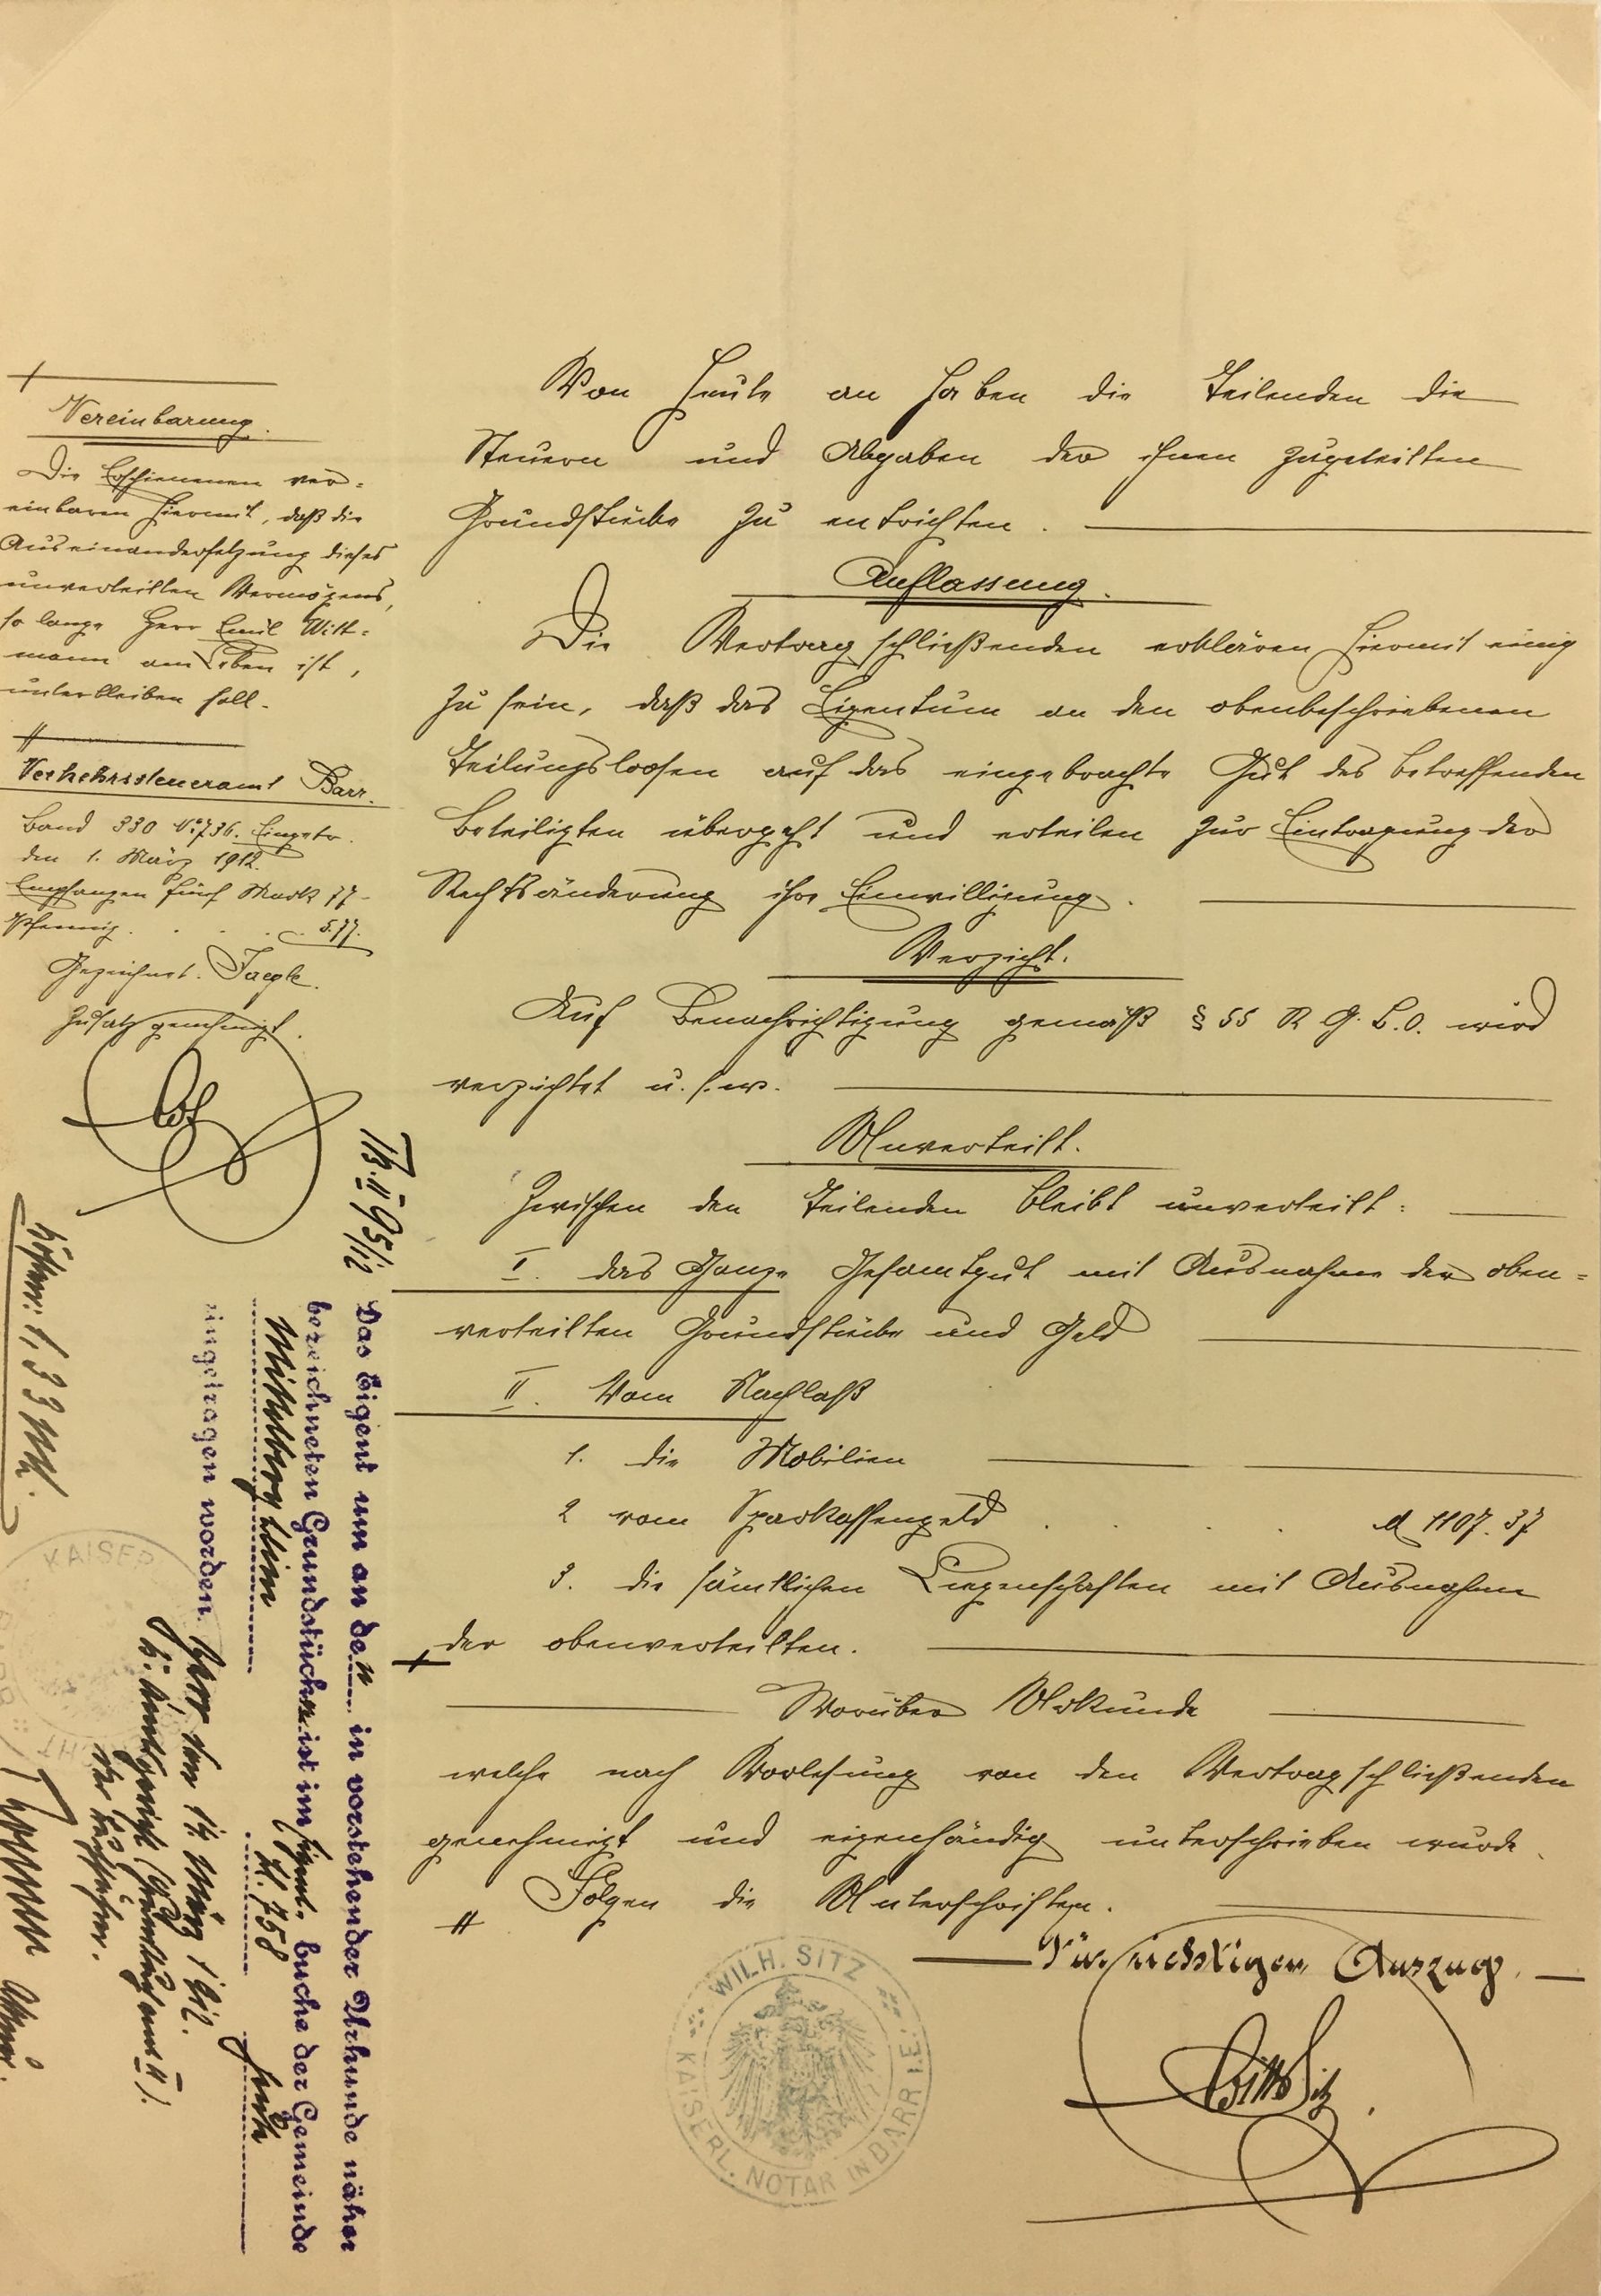 Von heute an haben die Teilenden die
Steuern und Abgaben der ihnen zugeteilten
Grundstücke zu entrichten.
Auflassung.
Die Vertragschließenden erklären hiermit einig
zu sein, daß das Eigentum an den obenbeschriebenen
Teilungsloosen auf das eingebrachte Gut des betreffenden
Beteiligten übergeht und erteilen zur Eintragung der
Rechtsänderung ihre Einwilligung.
Verzicht.
Auf Benachrichtigung gemäß § 55 R G. B. O. wird
verzichtet u. s. w.
Unverteilt.
Zwischen den Teilenden bleibt unverteilt:
I. das Ganze Gesamtgut mit Ausnahme der oben=
verteilten Grundstücke und Geld
II. Vom Nachlaß
1. die Mobilien
2 vom Sparkassengeld . . . . M 1107.37
3. die sämtlichen Liegenschaften mit Ausnahme
der obenverteilten.
Worüber Urkunde
welche nach Vorlesung von den Vertragschließenden
genehmigt und eigenhändig unterschrieben wurde.
Folgen die Unterschriften.
Für richtigen Auszug.
Sitz
WILH. SITZ
KAISERL. NOTAR IN BARR I.E.
Vereinbarung.
Die Erschienenen ver=
einbaren hiermit, daß die
Auseinandersetzung dieses
unverteilten Vermögens,
so lange Herr Emil Witt=
mann am Leben ist,
unterbleiben soll.
Verkehrssteueramt Barr.
Band 330 No. 736. Eingetr.
den 1. März 1912.
Empfangen fünf Mark 77
Pfennig. . . . . 5.77.
Gezeichnet. Jaegle.
Zusatz genehmigt.
II 95/12
Das Eigentum an den in vorstehender Urkunde näher
bezeichneten Grundstücken ist im Eigent. buche der Gemeinde
Mittelbergheim Bl. 758
eingetragen worden.
Barr den 14 März 1912.
K. Amtsgericht
Der Gerichtsschreiber.
1,33 M.
KAISER